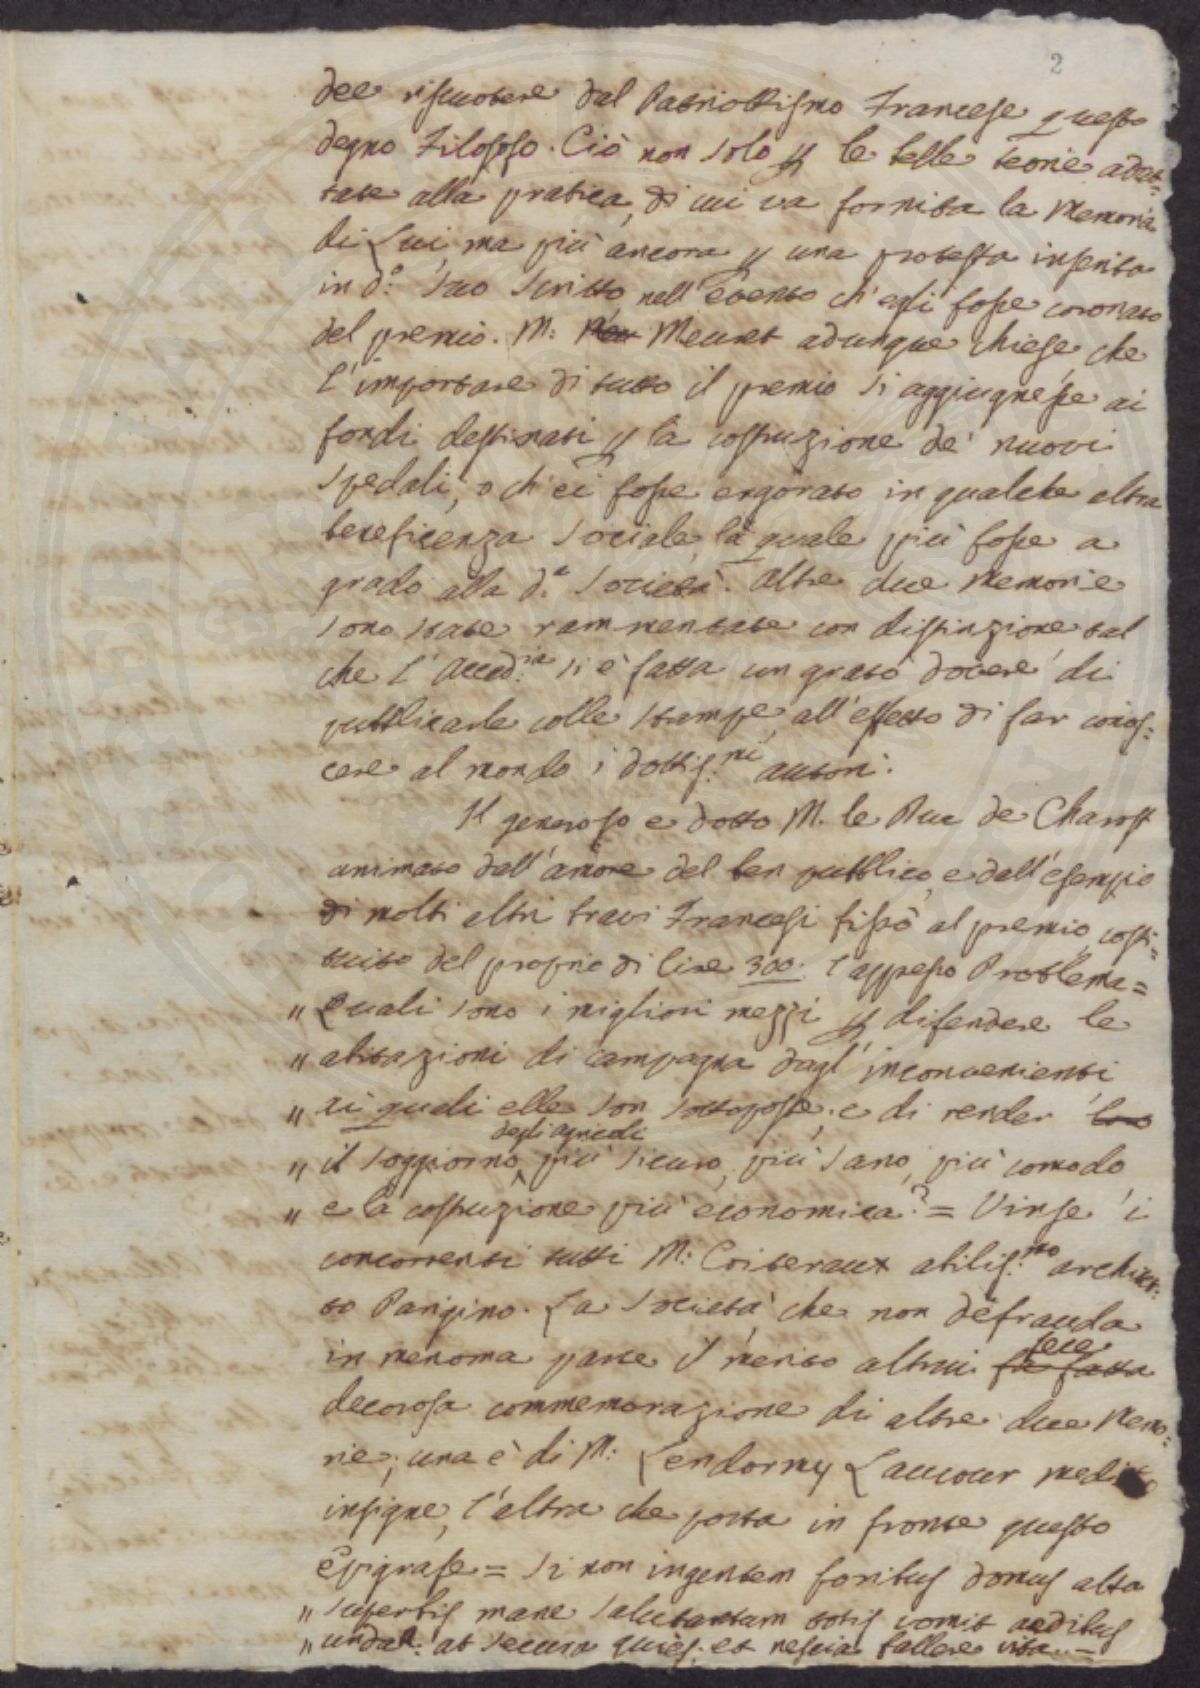 2
dee riscuotere dal Patriottismo Francese questo
degno Filosofo. Ciò non solo p le belle teorie adat=
tate alla pratica, di cui va fornita la Memoria
di Lui, ma più ancora p una protesta inserita
in d.o suo scritto, nell'evento ch'egli fosse coronato
del premio. M: Meuret adunque chiese che
l'importare di tutto il premio si aggiugnesse ai
fondi destinati p la costruzione de' nuovi
spedali, o ch'ei fosse erogato in qualche altra
beneficenza sociale, la quale più fosse a
grado alla d.a Società. Altre due Memorie
sono state rammentate con distinzione tal
che l'Accad.ia si è fatta un grato dovere di
pubblicarle colle stampe, all'effetto di far conos=
cere al mondo i dottis.mi autori.
Il generoso e dotto M. le Duc de Charost
animato dall'amore del ben pubblico, e dall'esempio
di molti altri bravi Francesi fissò al premio, costi=
tuito del proprio di lire 300. l'appresso Problema=
" Quali sono i migliori mezzi p difendere le
" abitazioni di campagna dagl'inconvenienti
" ai quali elle son sottoposte, e di render
degli agricoli
" il soggiorno più sicuro, più sano, più comodo,
" e la costruzione più economica? = Vinse i
concorrenti tutti M: Coiteraux abilis.mo architet=
to Parigino. La Società che non defrauda
in menoma parte il merito altrui fece
decorosa commemorazione di altre due Memo=
rie; una è di M: Lendormy Laucour medico
insigne, l'altra che porta in fronte questo
Epigrafe = Si non ingentem foribus domus alta
" superbis mane salutantum totis vomit aedibus
" undam: at secura quies, et nescia fallere vita =